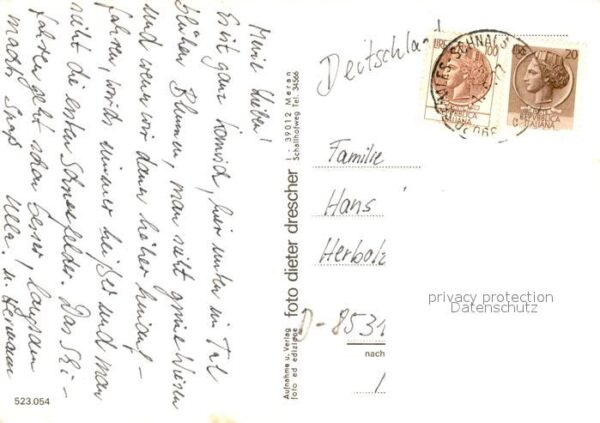 Meine Lieben!
Es ist ganz komisch, hier unten im Tal
blühen Blumen, man sieht grüne Wiesen
und wenn wir dann höher hinauf-
fahren, wird's immer heißer und man
sieht die ersten Schneefelder. Das Ski-
fahren geht schon besser! Langsam
macht's Spaß Ulla u. Hermann
523.054
Aufnahme u. Verlag
foto ed edizione
foto dieter drescher
I - 39012 Meran
Schallhofweg Tel. 34566
Deutschland
LIRE 100
20
SENALES-SCHNALS
Familie
Hans
Herbolz
D-8531
nach
privacy protection
Datenschutz